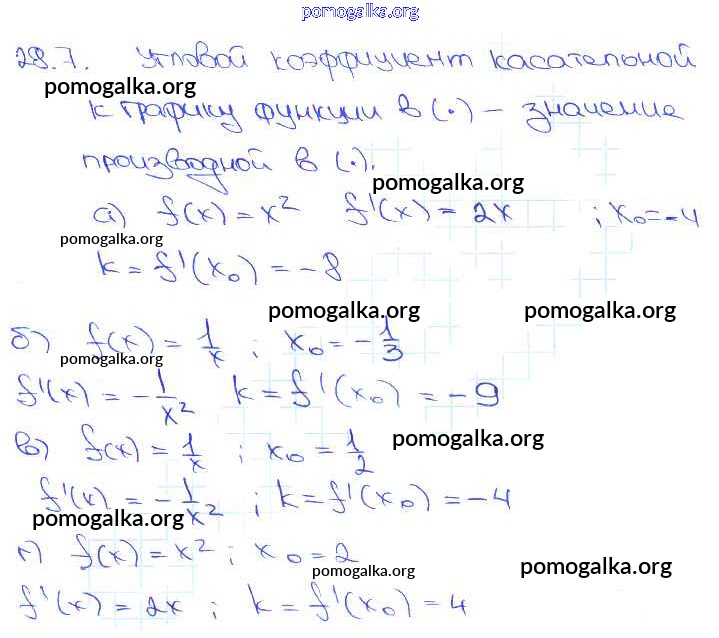 pomogalka.org
28.7. Угловой коэффициент касательной
pomogalka.org
к графику функции в (·) – значение
производной в (·).
pomogalka.org
а) f(x) = x² f'(x) = 2x ; x₀ = -4
pomogalka.org
k = f'(x₀) = -8
pomogalka.org pomogalka.org
б) f(x) = 1/x ; x₀ = -1/3
pomogalka.org
f'(x) = -1/x² k = f'(x₀) = -9
в) f(x) = 1/x ; x₀ = 1/2
pomogalka.org
f'(x) = -1/x² ; k = f'(x₀) = -4
pomogalka.org
г) f(x) = x² ; x₀ = 2
pomogalka.org pomogalka.org
f'(x) = 2x ; k = f'(x₀) = 4